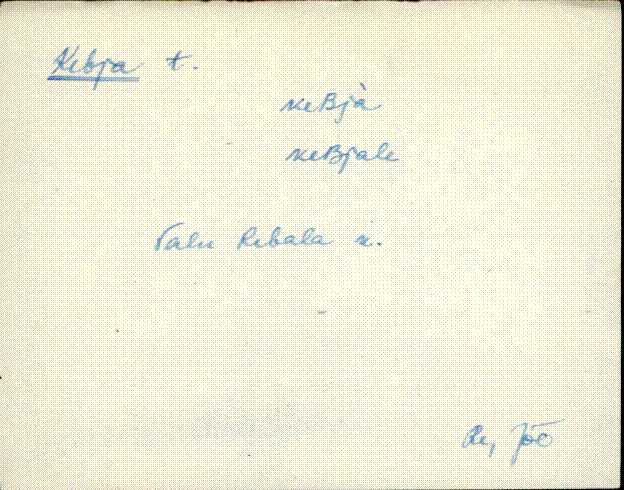 Kebja t.
keBjà
keBjale
Talu Rebala k.
Re, Jõe